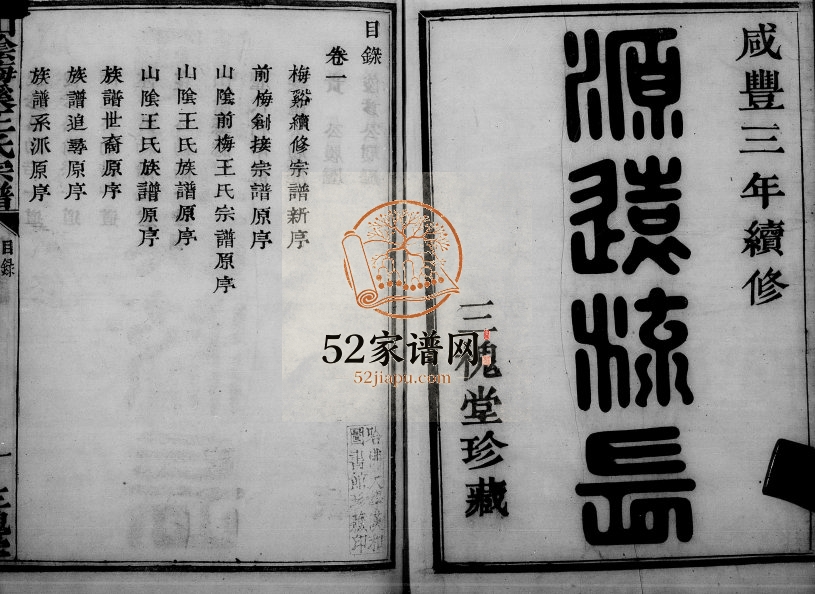 咸豐三年續修
源遠流長
三槐堂珍藏
目錄
卷一
梅谿續修宗譜新序
前梅創接宗譜原序
山陰前梅王氏宗譜原序
山陰王氏族譜原序
山陰王氏族譜原序
族譜世裔原序
族譜追尋原序
族譜系派原序
目錄
52家谱网
52jiapu.com